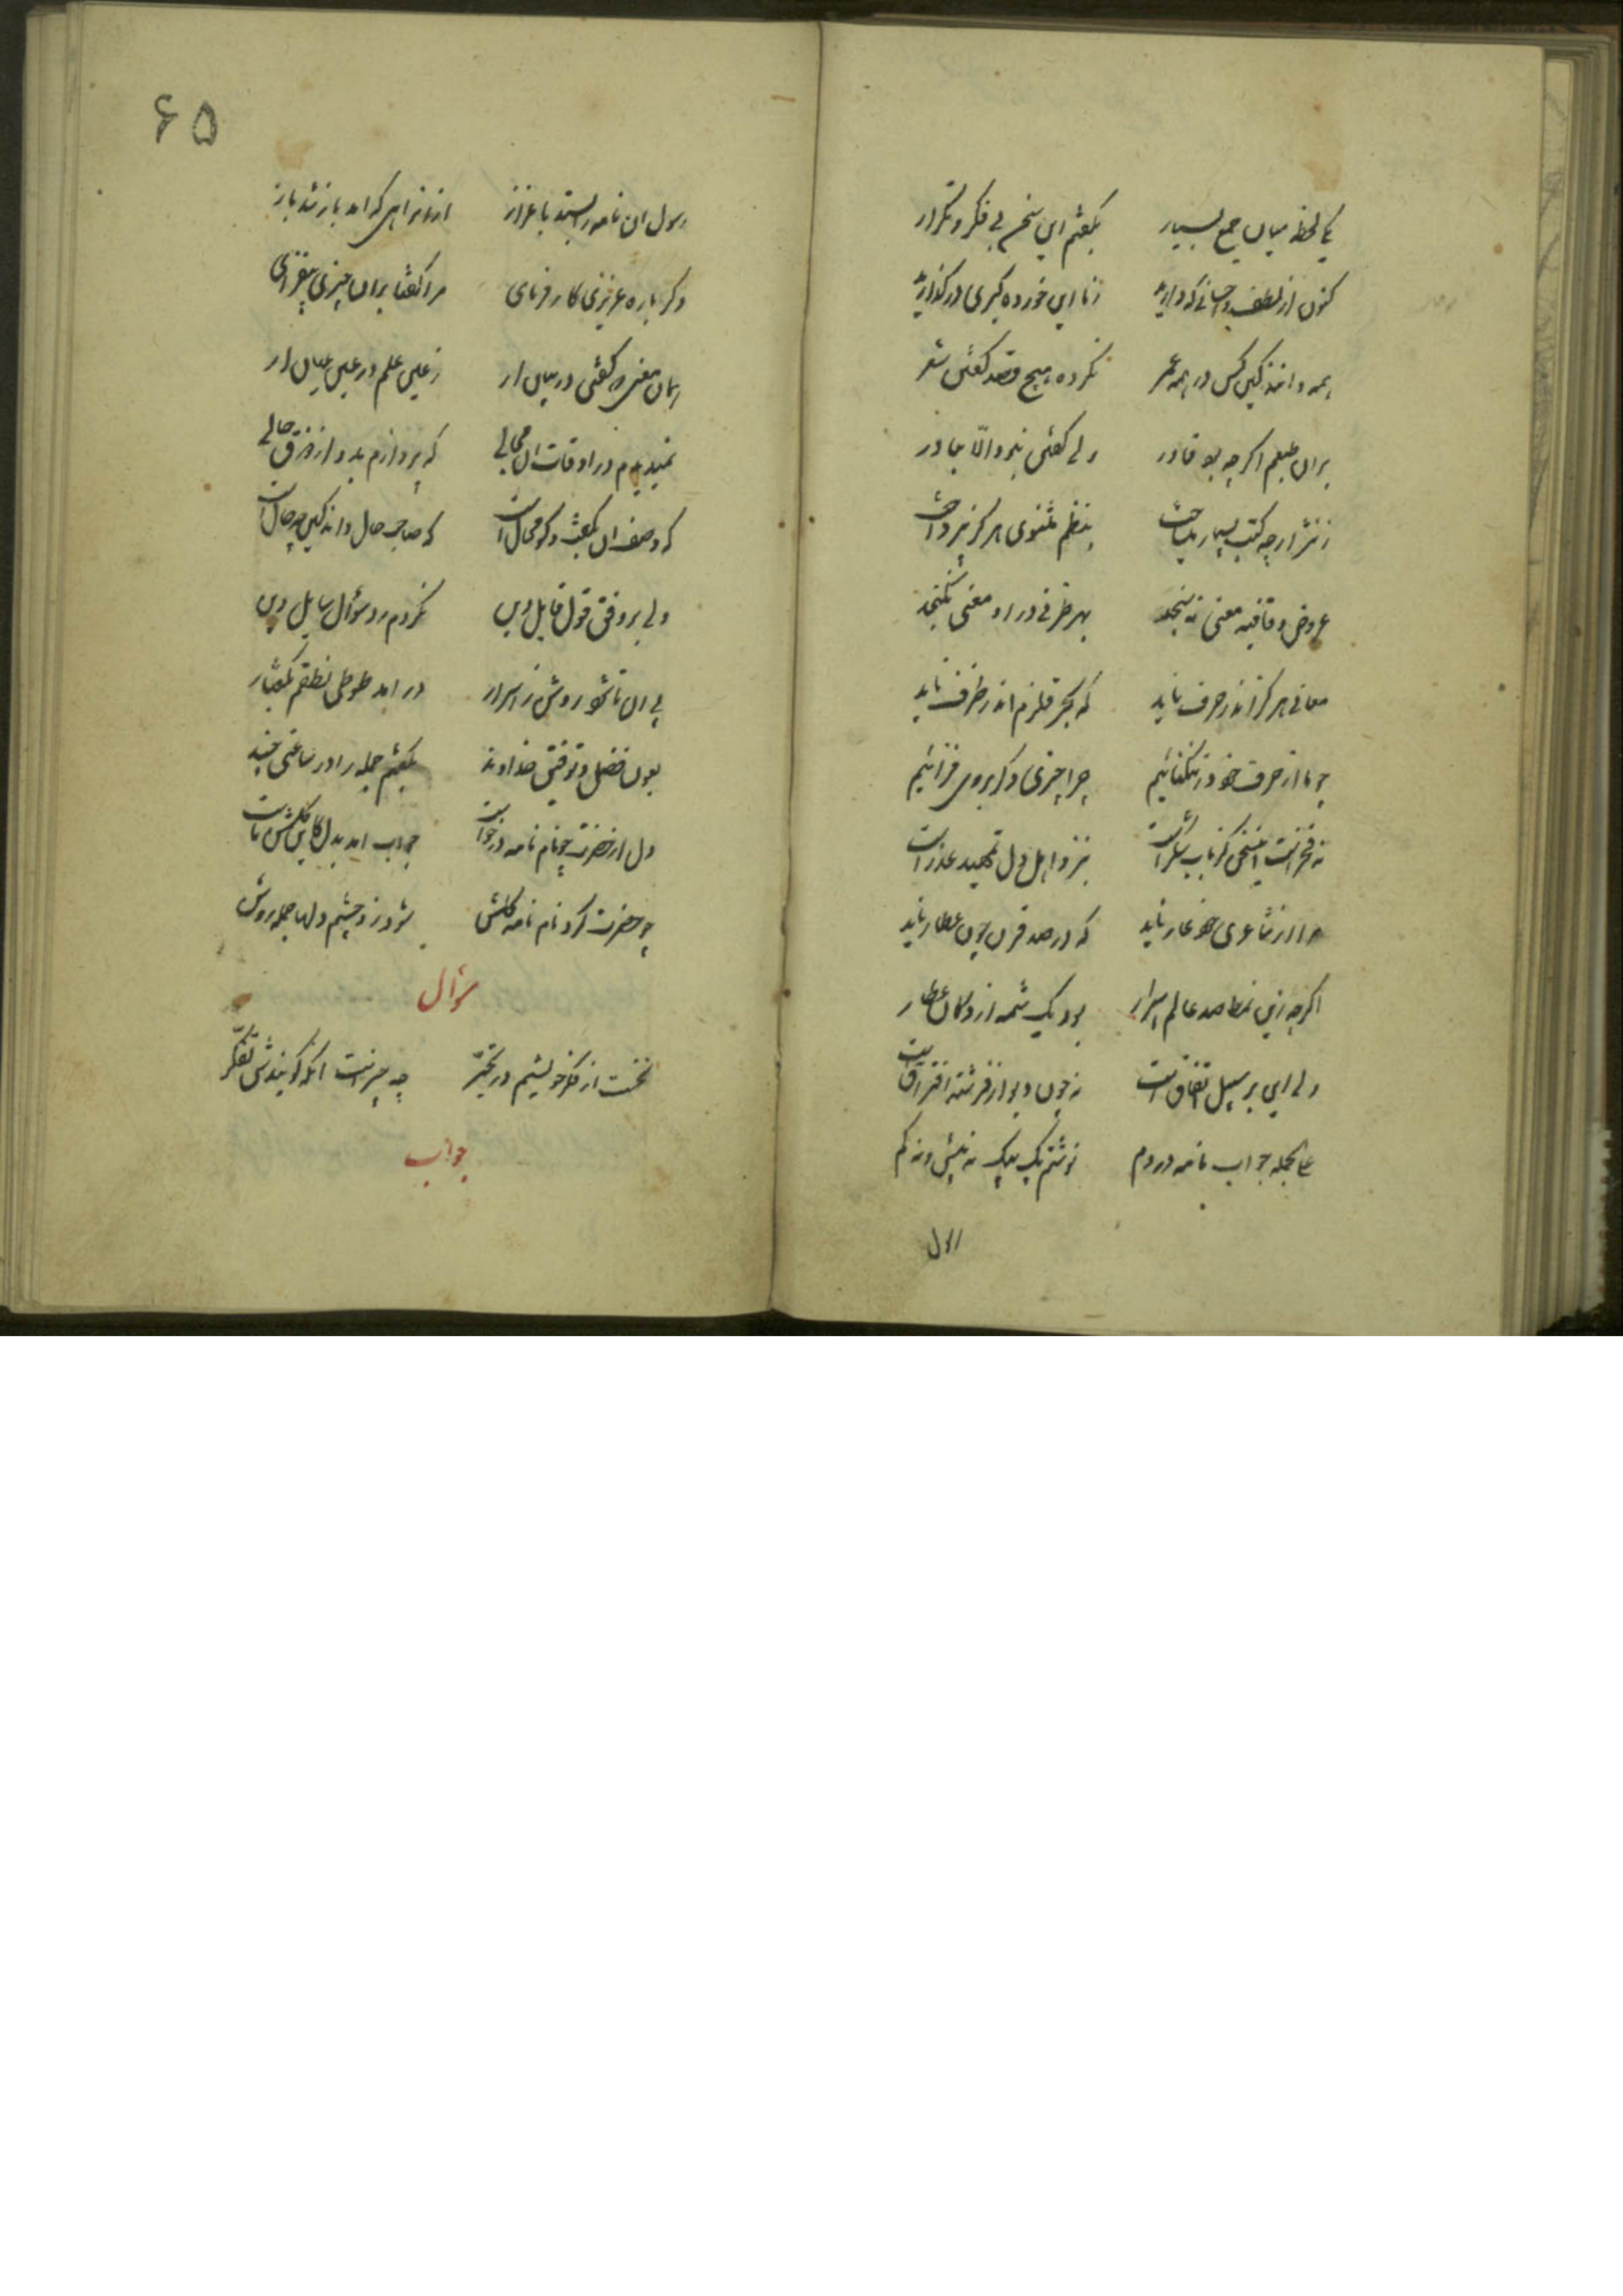 یکی لحظه میان جمع بسیار بگفتم این سخن بی فکر و تکرار
کنون از لطف و احسانی که دارید ز ما این خورده گیری در گذارید
همه دانند کین کس در همه عمر نکرده هیچ قصد گفتن شعر
بران طبعم اگرچه بود قادر ولی گفتن نبود الا بنادر
ز نثر ارچه کتب بسیار میساخت بنظم مثنوی هرگز نپرداخت
عروض و قافیه معنی نسنجد بهر ظرفی درو معنی نگنجد
معانی هرگز اندر حرف ناید که بحر قلزم اندر ظرف ناید
چو ما از حرف خود در تنگنائیم چرا چیزی دگر بروی فزائیم
نه فخرست این سخن کز باب شکرست بنزد اهل دل تمهید عذرست
مرا از شاعری خود عار ناید که در صد قرن چون عطار ناید
اگرچه زین نمط صد عالم اسرار بود یک شمه از دکان عطار
ولی این بر سبیل اتفاق است نه چون دیو از فرشته استراق است
علی الجمله جواب نامه در دم نوشتم یک بیک نه بیش و نه کم
رسول
۶۵
رسول آن نامه را بستد باعزاز ازان راهی که آمد باز شد باز
دگر باره عزیزی کار فرمای مرا گفتا بران چیزی بیفزای
همان معنی که گفتی در بیان آر ز عین علم در عین عیان آر
نمیدیدم در اوقات آن مجالی که پردازم بدو از ذوق حالی
که وصف آن بگفت و گو محال است که صاحب حال داند کین چه حال است
ولی بر وفق قول قایل دین نکردم رد سؤال سایل دین
پی آن تا شود روشن تر اسرار در آمد طوطی نطقم بگفتار
بعون فضل و توفیق خداوند بگفتم جمله را در ساعتی چند
دل از حضرت چو نام نامه درخواست جواب آمد بدل کاین گلشن ماست
چو حضرت کرد نام نامه گلشن شود زو چشم دلها جمله روشن
سؤال
نخست از فکر خویشم در تحیر چه چیزست آنکه گویندش تفکر
جواب